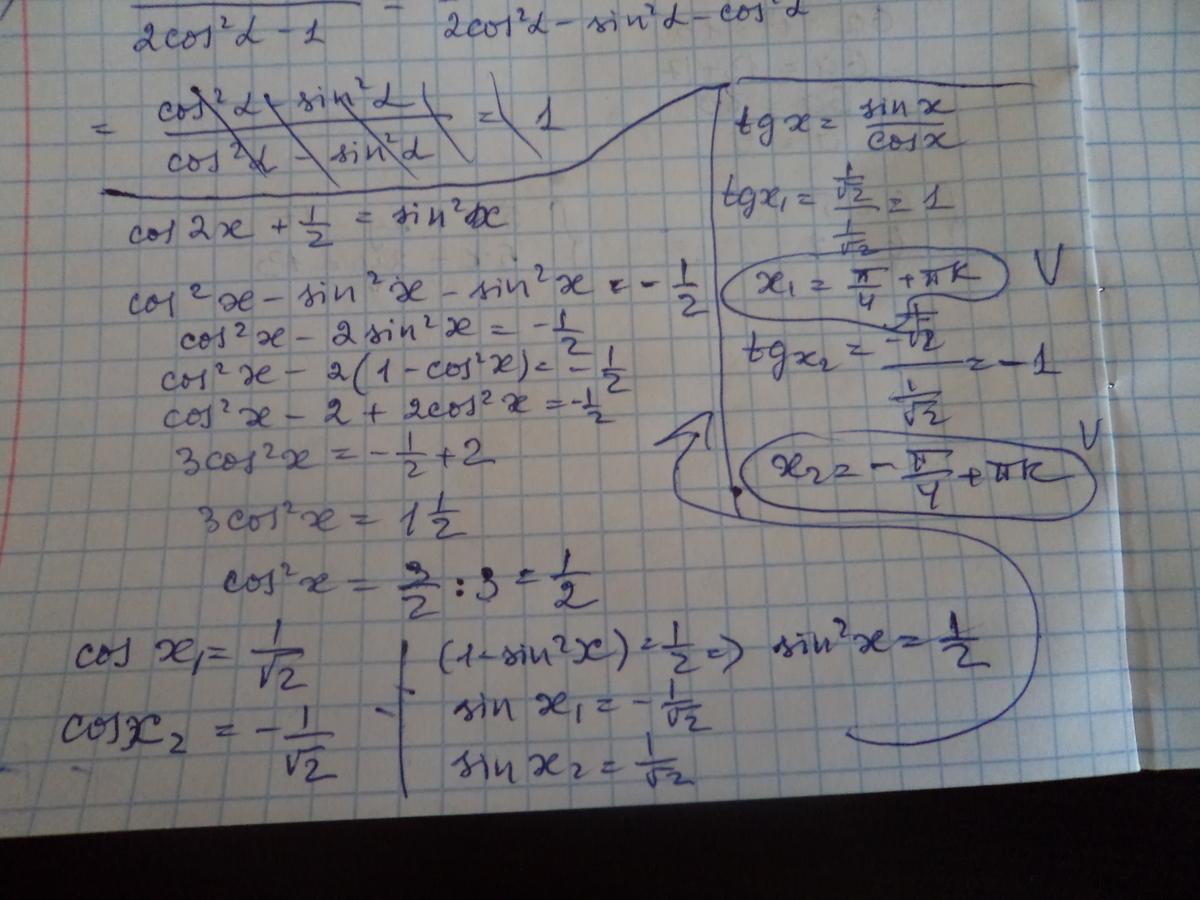 2cos²α - 1 = 2cos²α - sin²α - cos²α
= cos²α - sin²α / cos²α - sin²α = 1
cos 2x + 1/2 = sin²x
cos²x - sin²x - sin²x = - 1/2
cos²x - 2sin²x = - 1/2
cos²x - 2(1 - cos²x) = - 1/2
cos²x - 2 + 2cos²x = - 1/2
3cos²x = - 1/2 + 2
3cos²x = 1 1/2
cos²x = 3/2 : 3 = 1/2
cos x₁ = 1/√2
cos x₂ = - 1/√2
(1 - sin²x) = 1/2 => sin²x = 1/2
sin x₁ = - 1/√2
sin x₂ = 1/√2
tg x = sin x / cos x
tg x₁ = 1/√2 / 1/√2 = 1
x₁ = π/4 + πk V
tg x₂ = - 1/√2 / 1/√2 = - 1
x₂ = - π/4 + πk V